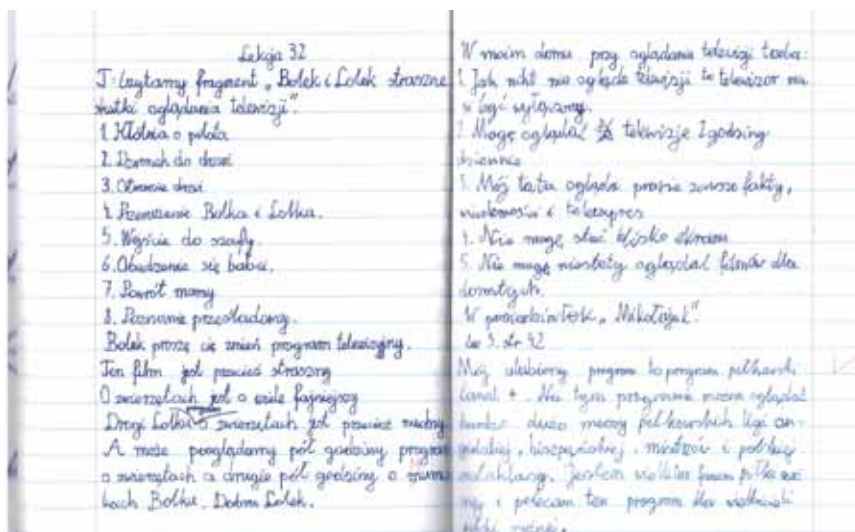 Lekcja 32
T: Czytamy fragment „Bolek i Lolek straszne
skutki oglądania telewizji".
1. Kłótnia o pilota
2. Dzwonek do drzwi
3. Otwarcie drzwi
4. Przerażenie Bolka i Lolka.
5. Wejście do szafy.
6. Obudzenie się babci.
7. Powrót mamy
8. Poznanie prześladowcy.
Bolek proszę cię zmień program telewizyjny.
Ten film jest przecież straszny
O zwierzętach jest o wiele fajniejszy
Drogi Lolku o zwierzętach jest przecież nudny
A może pooglądamy pół godziny program
o zwierzętach a drugie pół godziny o
Bolku. Dobra Lolek.
W moim domu przy oglądaniu telewizji trzeba:
1. Jak nikt nie ogląda telewizji to telewizor mu
si być wyłączony.
2. Mogę oglądać telewizje 1 godzinę
dziennie
3. Mój tata ogląda prawie zawsze fakty,
wiadomości i teleexpres
4. Nie mogę stać blisko ekranu
5. Nie mogę niestety oglądać filmów dla
dorosłych.
W „Mikołajek".
ćw 3. str 42
Mój ulubiony program to program piłkarski
canal +. Na tym programie można oglądać
bardzo dużo meczy piłkarskich ligi an
gielskiej, hiszpańskiej, mistrzów i polskiej
ekstraklasy. Jestem wielkim fanem piłki noż
nej i polecam ten program dla wielbicieli
piłki nożnej.